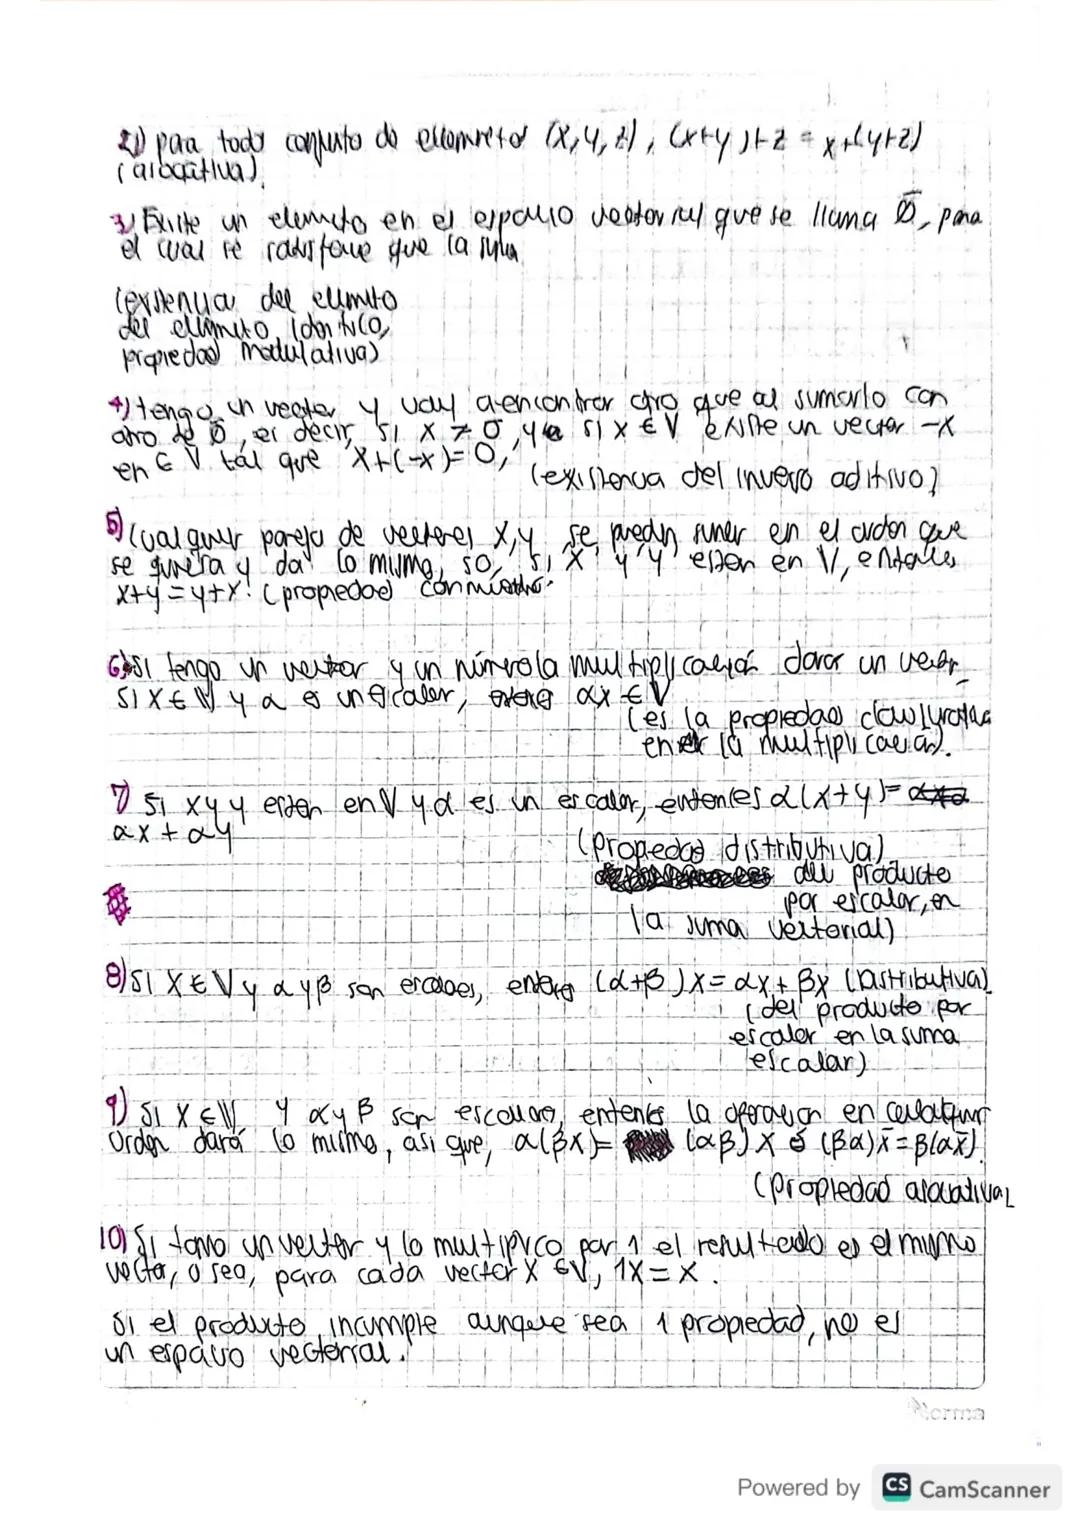 2) para todo conjunto de elementos (x,y,z), (x+y)+z = x+(y+z)
(asociativa).
3) Existe un elemento en el espacio vectorial que se llama 0̄, para
el cual se satisface que la suma
(existencia del elemento
del elemento identico,
propiedad modulativa)
4) tengo un vector y voy a encontrar otro que al sumarlo con
otro de 0̄, es decir, si x ≠ 0, si x ∈ V existe un vector -x
en ∈ V tal que x+(-x)=0,
(existencia del inverso aditivo)
5) Cualquier pareja de vectores x,y se puedn sumar en el orden que
se quiera y da lo mismo, so, si x y y esten en V, entonces
x+y=y+x. (propiedad conmutativa.
6) Si tengo un vector y un número la multiplicación dara un vector,
si x ∈ V y α es un escalar, entonces αx ∈ V
(es la propiedad clausurativa
en la multiplicación).
7) Si x y y esten en V y α es un escalar, entonces α(x+y)=
αx + αy
(Propiedad distributiva)
del producto
por escalar, en
la suma vectorial)
8) Si x ∈ V y α y β son escalares, entonces (α+β)x = αx + βx (Distributiva)
(del producto por
escalar en la suma
escalar)
9) Si x ∈ V y α y β son escalares, entonces la operación en cualquier
orden dará lo mismo, asi que, α(βx)= (αβ)x ó (βα)x̄ = β(αx̄).
(Propiedad asociativa)
10) Si tomo un vector y lo multiplico por 1 el resultado es el mismo
vector, o sea, para cada vector x ∈ V, 1x = x.
Si el producto incumple aunque sea 1 propiedad, no es
un espacio vectorial.
Norma
Powered by CS CamScanner